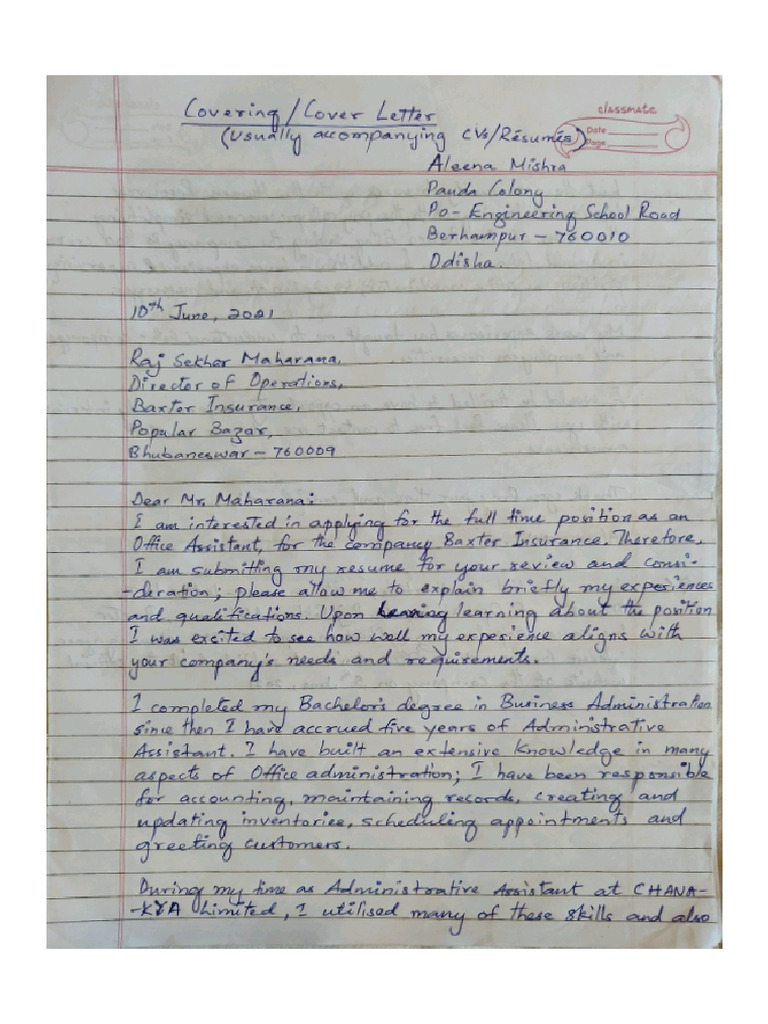 Covering/Cover Letter
classmate
(Usually accompanying CVs/Résumés)
Date
Page
Aleena Mishra
Panda Colony
Po- Engineering School Road
Berhampur - 760010
Odisha.
10th June, 2021
Raj Sekhar Maharana,
Director of Operations,
Baxter Insurance,
Popular Bazar,
Bhubaneswar - 760009
Dear Mr. Maharana:
I am interested in applying for the full time position as an
Office Assistant, for the company Baxter Insurance. Therefore,
I am submitting my resume for your review and consi-
-deration; please allow me to explain briefly my experiences
and qualifications. Upon learning about the position
I was excited to see how well my experience aligns with
your company's needs and requirements.
I completed my Bachelor's degree in Business Administration
since then I have accrued five years of Administrative
Assistant. I have built an extensive knowledge in many
aspects of Office administration; I have been responsible
for accounting, maintaining records, creating and
updating inventories, scheduling appointments and
greeting customers.
During my time as Administrative Assistant at CHANA-
-KYA Limited, I utilised many of these skills and also